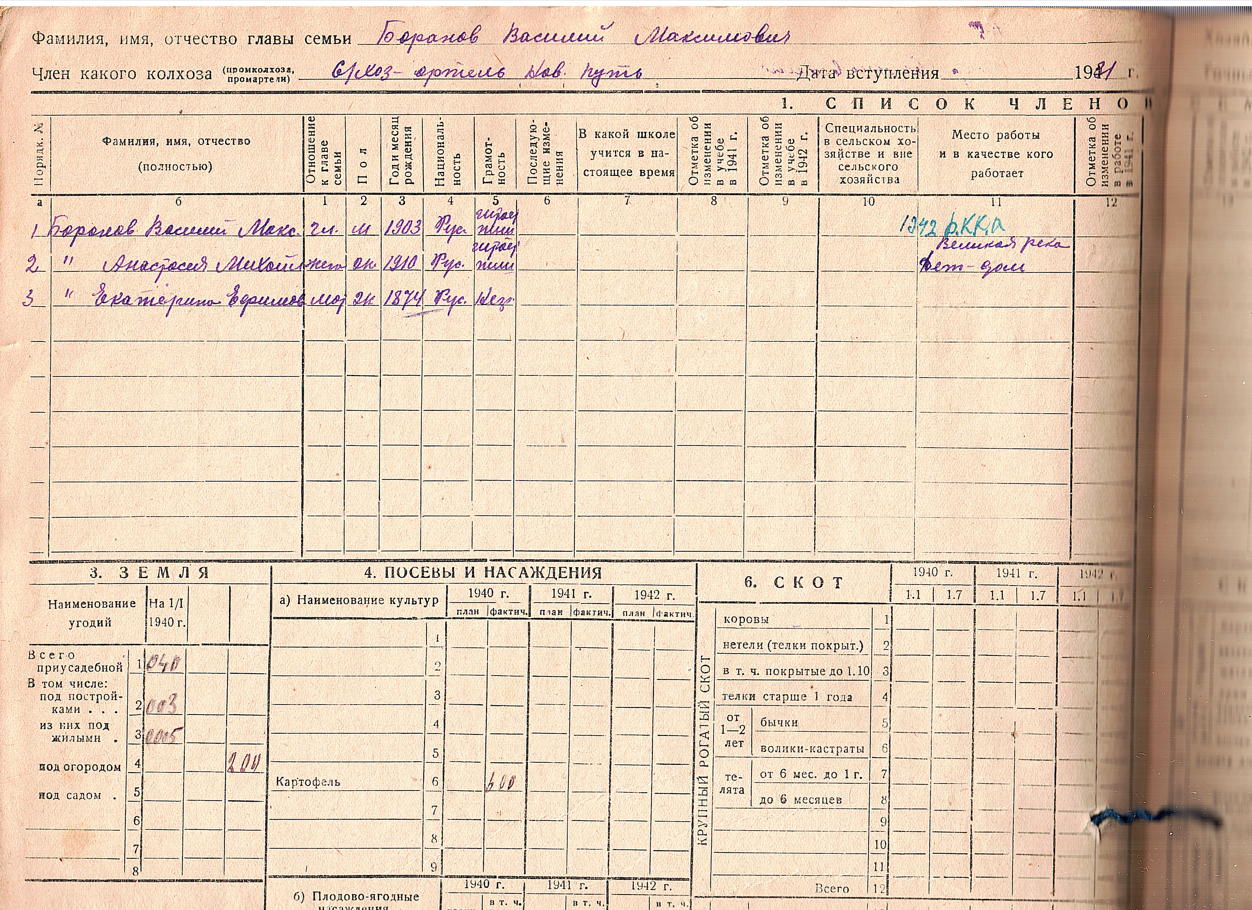 Фамилия, имя, отчество главы семьи Боранов Василий Максимович
Член какого колхоза (промколхоза, промартели) С/хоз-артель Нов. Путь Дата вступления 1941 г.
1. СПИСОК ЧЛЕНО
Порядк. № Фамилия, имя, отчество (полностью) Отношение к главе семьи Пол Год и месяц рождения Националь-ность Грамот-ность Последую-щие изме-нения В какой школе учится в на-стоящее время Отметка об изменении в учебе в 1941 г. Отметка об изменении в учебе в 1942 г. Специальность в сельском хо-зяйстве и вне сельского хозяйства Место работы и в качестве кого работает Отметка об изменении в работе в 1941 г.
а б 1 2 3 4 5 6 7 8 9 10 11 12
1 Боранов Василий Макс. гл. м 1903 Рус. 1942 РККА
2 " Анастасия Михайл жена ж 1910 Рус. Великая река Дет-дом
3 " Екатерина Ефимов мат ж 1874 Рус. Нез.
3. ЗЕМЛЯ
Наименование угодий На 1/I 1940 г.
Всего приусадебной 1 040
В том числе:
под построй-ками . . . 2 003
из них под жилыми . 3 0005
под огородом 4 200
под садом . 5
6
7
8
4. ПОСЕВЫ И НАСАЖДЕНИЯ
а) Наименование культур 1940 г. 1941 г. 1942 г.
план фактич. план фактич. план фактич.
1
2
3
4
5
Картофель 6 600
7
8
9
1940 г. 1941 г. 1942 г.
б) Плодово-ягодные насаждения в т. ч. в т. ч. в т. ч.
6. СКОТ
1940 г. 1941 г. 1942 г.
1.1 1.7 1.1 1.7 1.1 1.7
КРУПНЫЙ РОГАТЫЙ СКОТ
коровы 1
нетели (телки покрыт.) 2
в т. ч. покрытые до 1.10 3
телки старше 1 года 4
от 1—2 лет бычки 5
волики-кастраты 6
те-лята от 6 мес. до 1 г. 7
до 6 месяцев 8
9
10
11
Всего 12